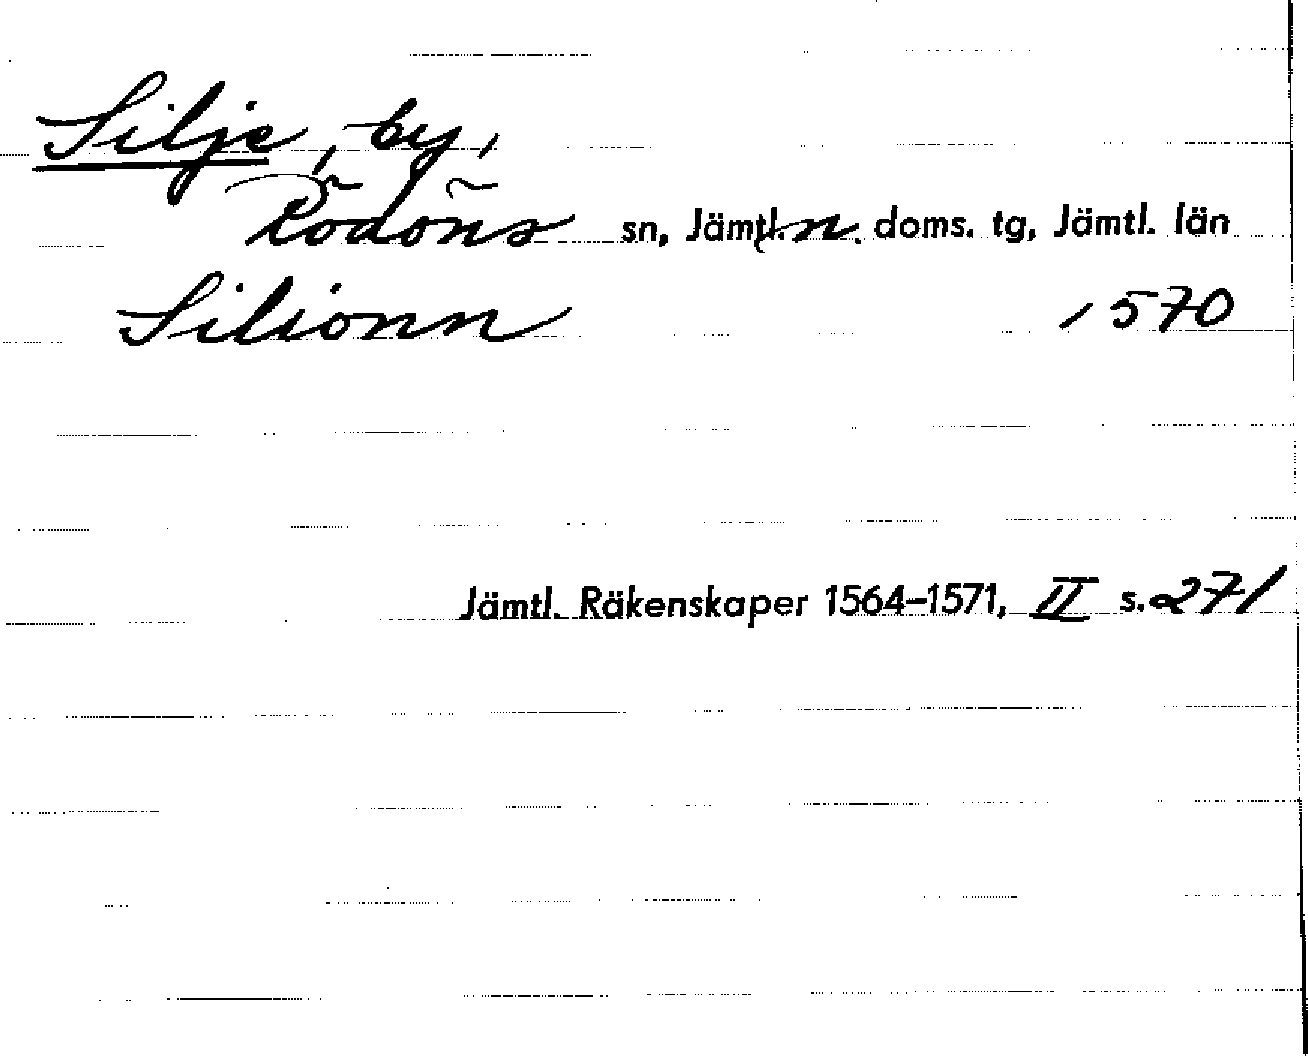 Silje, by,
Rödöns sn, Jämtl. n. doms. tg, Jämtl. län
Silionn 1570
Jämtl. Räkenskaper 1564–1571, II s. 271